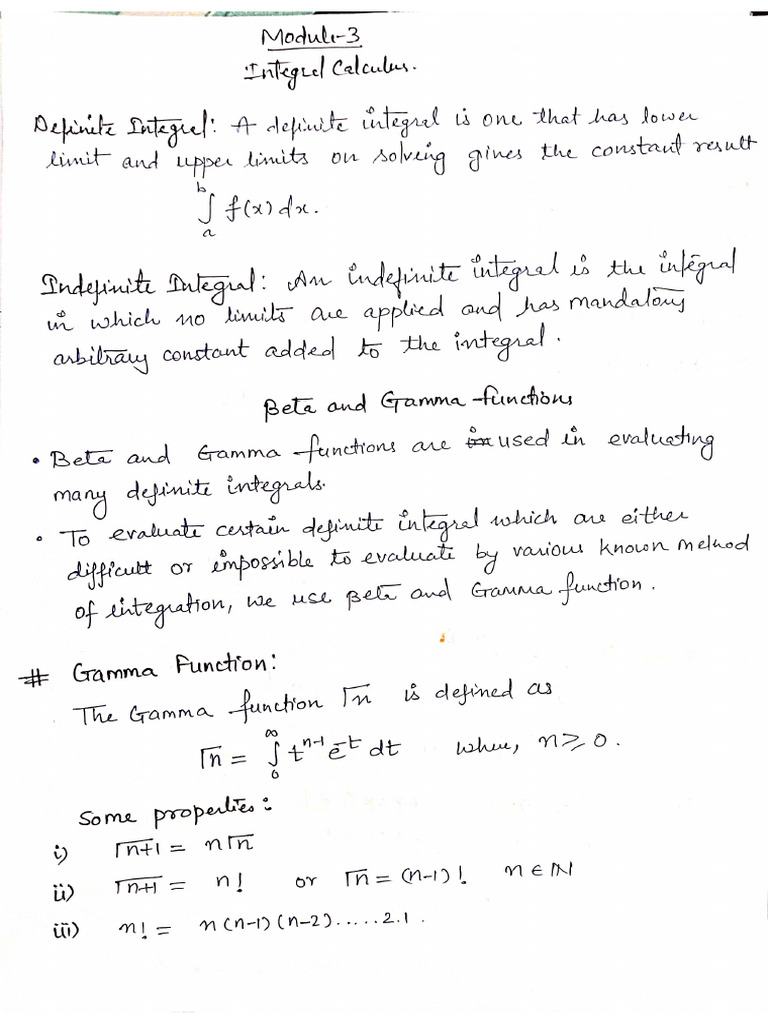 Module-3
Integral Calculus.
Definite Integral: A definite integral is one that has lower
limit and upper limits on solving gives the constant result
∫ₐᵇ f(x) dx.
Indefinite Integral: An indefinite integral is the integral
in which no limits are applied and has mandatory
arbitrary constant added to the integral.
Beta and Gamma functions
• Beta and Gamma functions are used in evaluating
many definite integrals.
• To evaluate certain definite integral which are either
difficult or impossible to evaluate by various known method
of integration, we use Beta and Gamma function.
# Gamma Function:
The Gamma function Γn is defined as
Γn = ∫₀^∞ t^(n-1) e^(-t) dt where, n ≥ 0.
Some properties:
i) Γn+1 = nΓn
ii) Γn+1 = n! or Γn = (n-1)! n ∈ ℕ
iii) n! = n(n-1)(n-2).....2.1.